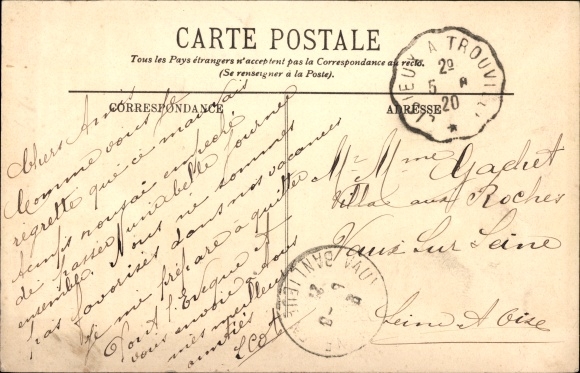 CARTE POSTALE
Tous les Pays étrangers n'acceptent pas la Correspondance au recto.
(Se renseigner à la Poste).
CORRESPONDANCE
ADRESSE
Chers Amis
Comme vous je
regrette que ce mauvais
temps nous ai empeché
de passer une belle journée
ensemble. Nous ne sommes
pas favorisés dans nos vacances
Je me prépare à quitter
Pont l'Eveque et
vous envoie à tous
mes meilleurs
amitiés
Mr Mme Gachet
Villa aux Roches
Vaux Sur Seine
Seine & Oise
LISIEUX A TROUVILLE
2º
5
20
VAUX